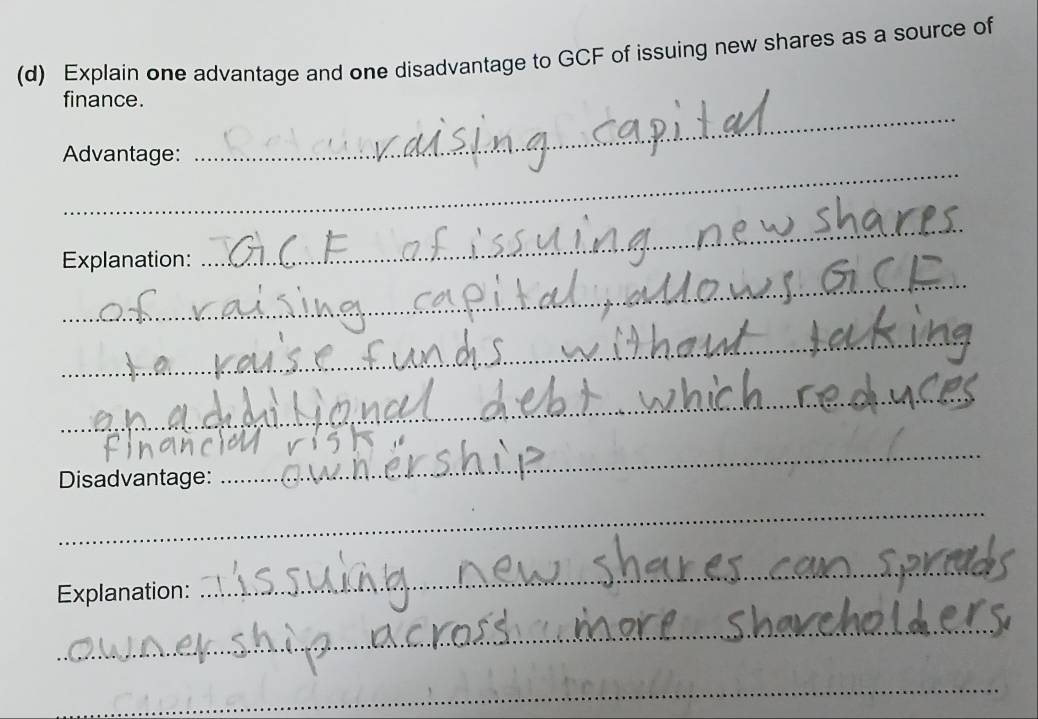 (d) Explain one advantage and one disadvantage to GCF of issuing new shares as a source of
finance.
Advantage: raising capital
Explanation: GCF of issuing new shares
of raising capital, allows GCF
to raise funds without taking
on additional debt which reduces
financial risk
Disadvantage: ownership
Explanation: issuing new shares can spreads
ownership across more shareholders.